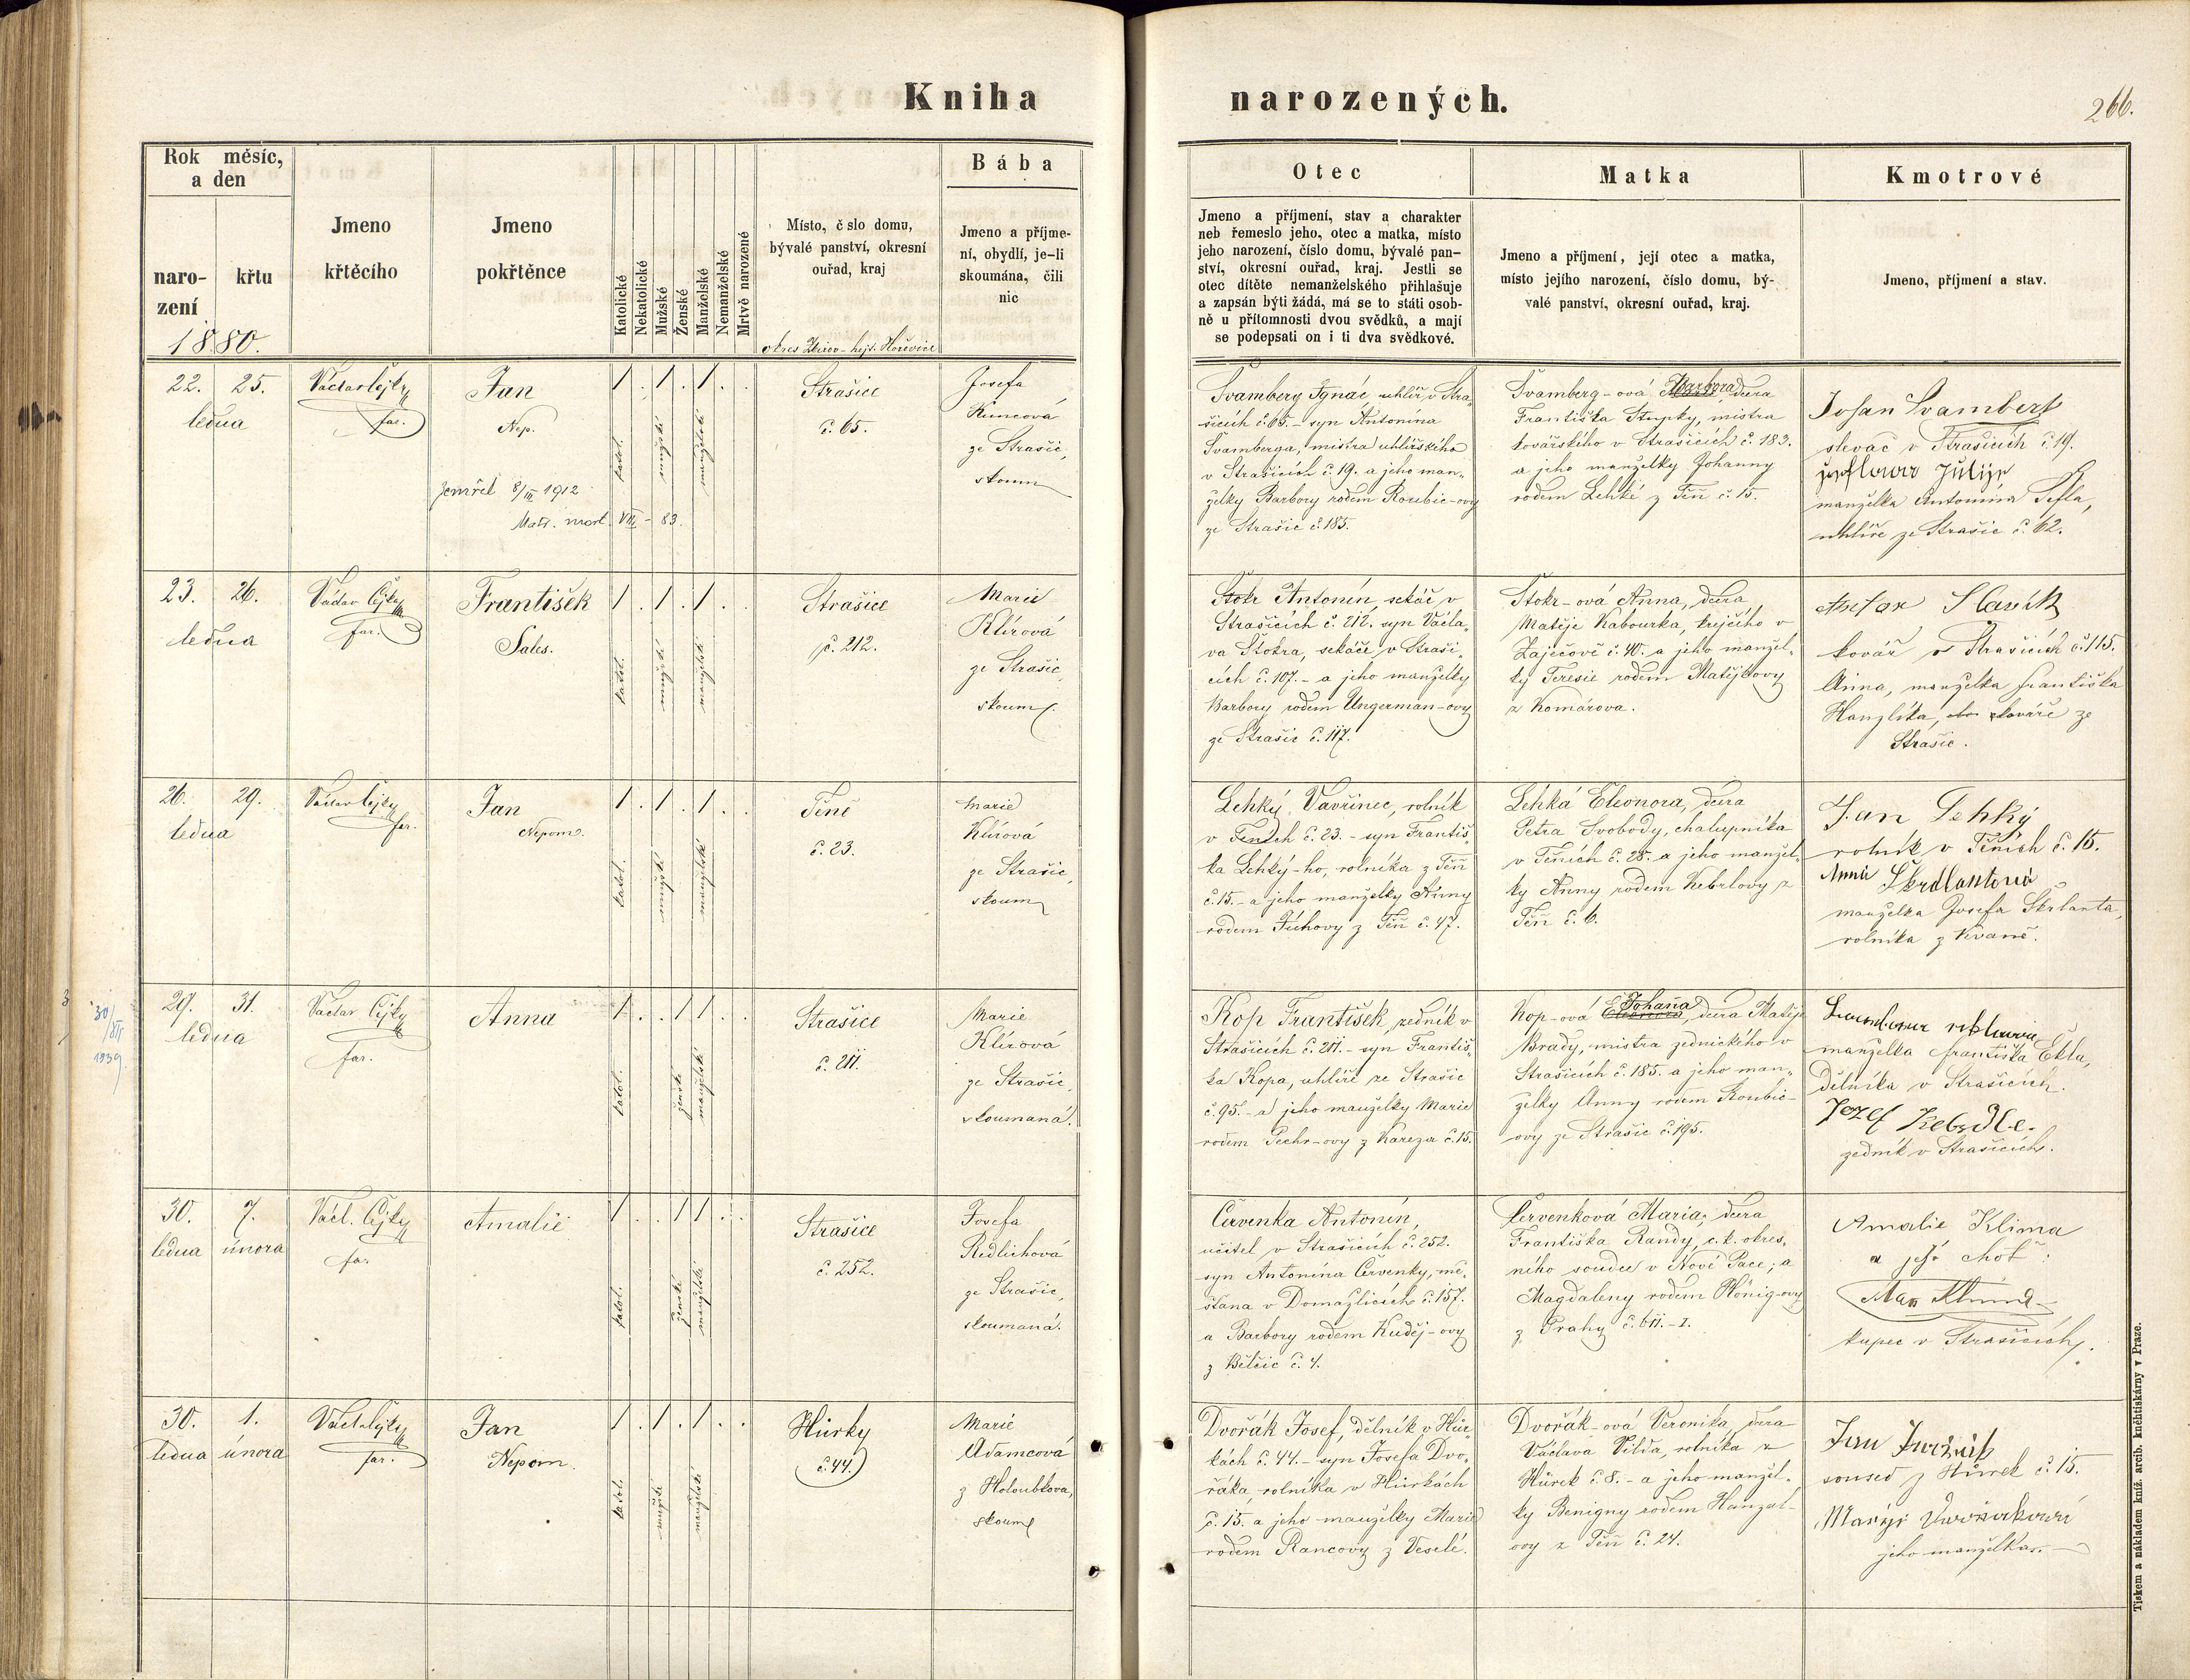 Kniha narozených.
266.
Rok měsíc,
a den
naro-
zení
křtu
1880.
Jmeno
křtěcího
Jmeno
pokřtěnce
Katolické
Nekatolické
Mužské
Ženské
Manželské
Nemanželské
Mrtvě narozené
Místo, č slo domu,
bývalé panství, okresní
ouřad, kraj
okres Zbirov – hejt. Hořovice
Bába
Jmeno a příjme-
ní, obydlí, je-li
skoumána, čili
nic
Otec
Jmeno a příjmení, stav a charakter
neb řemeslo jeho, otec a matka, místo
jeho narození, číslo domu, bývalé pan-
ství, okresní ouřad, kraj. Jestli se
otec dítěte nemanželského přihlašuje
a zapsán býti žádá, má se to státi osob-
ně u přítomnosti dvou svědků, a mají
se podepsati on i ti dva svědkové.
Matka
Jmeno a příjmení, její otec a matka,
místo jejího narození, číslo domu, bý-
valé panství, okresní ouřad, kraj.
Kmotrové
Jmeno, příjmení a stav.
22. 25.
ledna
Václav Cejky
far.
Jan
Nep.
zemřel 8/III 1912
Matr. mort. VII – 83.
1 . 1 . 1 . .
katol.
mužské
manželské
Strašice
č. 65.
Josefa
Kuncová
ze Strašic,
skoum
Švamberg Ignác, uhlíř v Stra,
šicích č. 65. – syn Antonína
Švamberga, mistra uhlířského
v Strašicích č. 19. a jeho man-
želky Barbory rodem Roubic-ovy
ze Strašic č. 185.
Švamberg-ová Barbora dcera
Františka Stupky, mistra
kovářského v Strašicích č. 183.
a jeho manželky Johanny
rodem Lehké z Těň č. 15.
Johan Svamberk
slevač v Strašicích č. 19.
Julije
manželka Antonína Šefla,
uhlíře ze Strašic č. 62.
23. 26.
ledna
Václav Cejky
far.
František
Sales.
1 . 1 . 1 . .
katol.
mužské
manželské
Strašice
č. 212.
Marie
Klírová
ze Strašic,
skoum.
Štokr Antonín, sekáč v
Strašicích č. 212. syn Václa,
va Štokra, sekáče v Straši,
cích č. 107. – a jeho manželky
Barbory rodem Ungerman-ovy
ze Strašic č. 117.
Štokr-ová Anna, dcera
Matěje Kabourka, krejčího v
Zaječově č. 40. a jeho manžel,
ky Teresie rodem Matějkovy
z Komárova.
Slavík
kovář v Strašicích č. 115.
Anna, manželka Františka
Hanzlíka, kováře ze
Strašic.
26. 29.
ledna
Václav Cejky
far.
Jan
Nepom.
1 . 1 . 1 . .
katol.
mužské
manželské
Těně
č. 23.
Marie
Klírová
ze Strašic,
skoum
Lehký Vavřinec, rolník
v Těních č. 23. – syn Františ,
ka Lehký-ho, rolníka z Těň
č. 15. – a jeho manželky Anny
rodem Fuchovy z Těň č. 47.
Lehká Eleonora, dcera
Petra Svobody, chalupníka
v Těních č. 28. a jeho manžel,
ky Anny rodem Kebrlovy z
Těň č. 6.
Jan Lehký
rolník v Těních č. 15.
Anna Škrdlantová
manželka Josefa Škrlanta,
rolníka z Kvaně.
30/XII
1939
29. 31.
ledna
Václav Cejky
far.
Anna
1 . . 1 1 . .
katol.
ženské
manželské
Strašice
č. 211.
Marie
Klírová
ze Strašic,
skoumaná.
Kop František, zedník v
Strašicích č. 211. – syn Františ,
ka Kopa, uhlíře ze Strašic
č. 95. – a jeho manželky Marie
rodem Pechr-ovy z Kareza č. 15.
Kop-ová Johana, dcera Matěje
Brady, mistra zednického v
Strašicích č. 185. a jeho man-
želky Anny rodem Roubic-
ovy ze Strašic č. 195.
manželka Františka Ekla,
dělníka v Strašicích.
Jozef
zedník v Strašicích.
30. 7.
ledna února
Václ. Cejky
far.
Amalie
1 . . 1 1 . .
katol.
ženské
manželské
Strašice
č. 252.
Josefa
Redlichová
ze Strašic,
skoumaná.
Červenka Antonín,
učitel v Strašicích č. 252.
syn Antonína Červenky, mě,
šťana v Domažlicích č. 157.
a Barbory rodem Kuděj-ovy
z Bělčic č. 4.
Červenková Maria, dcera
Františka Randy, c. k. okres,
ního soudce v Nové Pace; a
Magdaleny rodem Hönig-ovy
z Prahy č. 611. – I.
Amalie Klima
a její choť:
Max Klima
kupec v Strašicích.
30. 1.
ledna února
Václ. Cejky
far.
Jan
Nepom.
1 . 1 . 1 . .
katol.
mužské
manželské
Hůrky
č. 44.
Marie
Adamcová
z Holoubkova,
skoum
Dvořák Josef, dělník v Hůr,
kách č. 44. – syn Josefa Dvo,
řáka rolníka v Hůrkách
č. 15. a jeho manželky Marie
rodem Rancovy z Veselé.
Dvořák-ová Veronika, dcera
Václava Vilda, rolníka z
Hůrek č. 8. – a jeho manžel,
ky Benigny rodem Hanzal-
ovy z Těň č. 24.
Jan
soused z Hůrek č. 15.
Marye Dvořáková
jeho manželka.
Tiskem a nákladem kníž. arcib. kněhtiskárny v Praze.